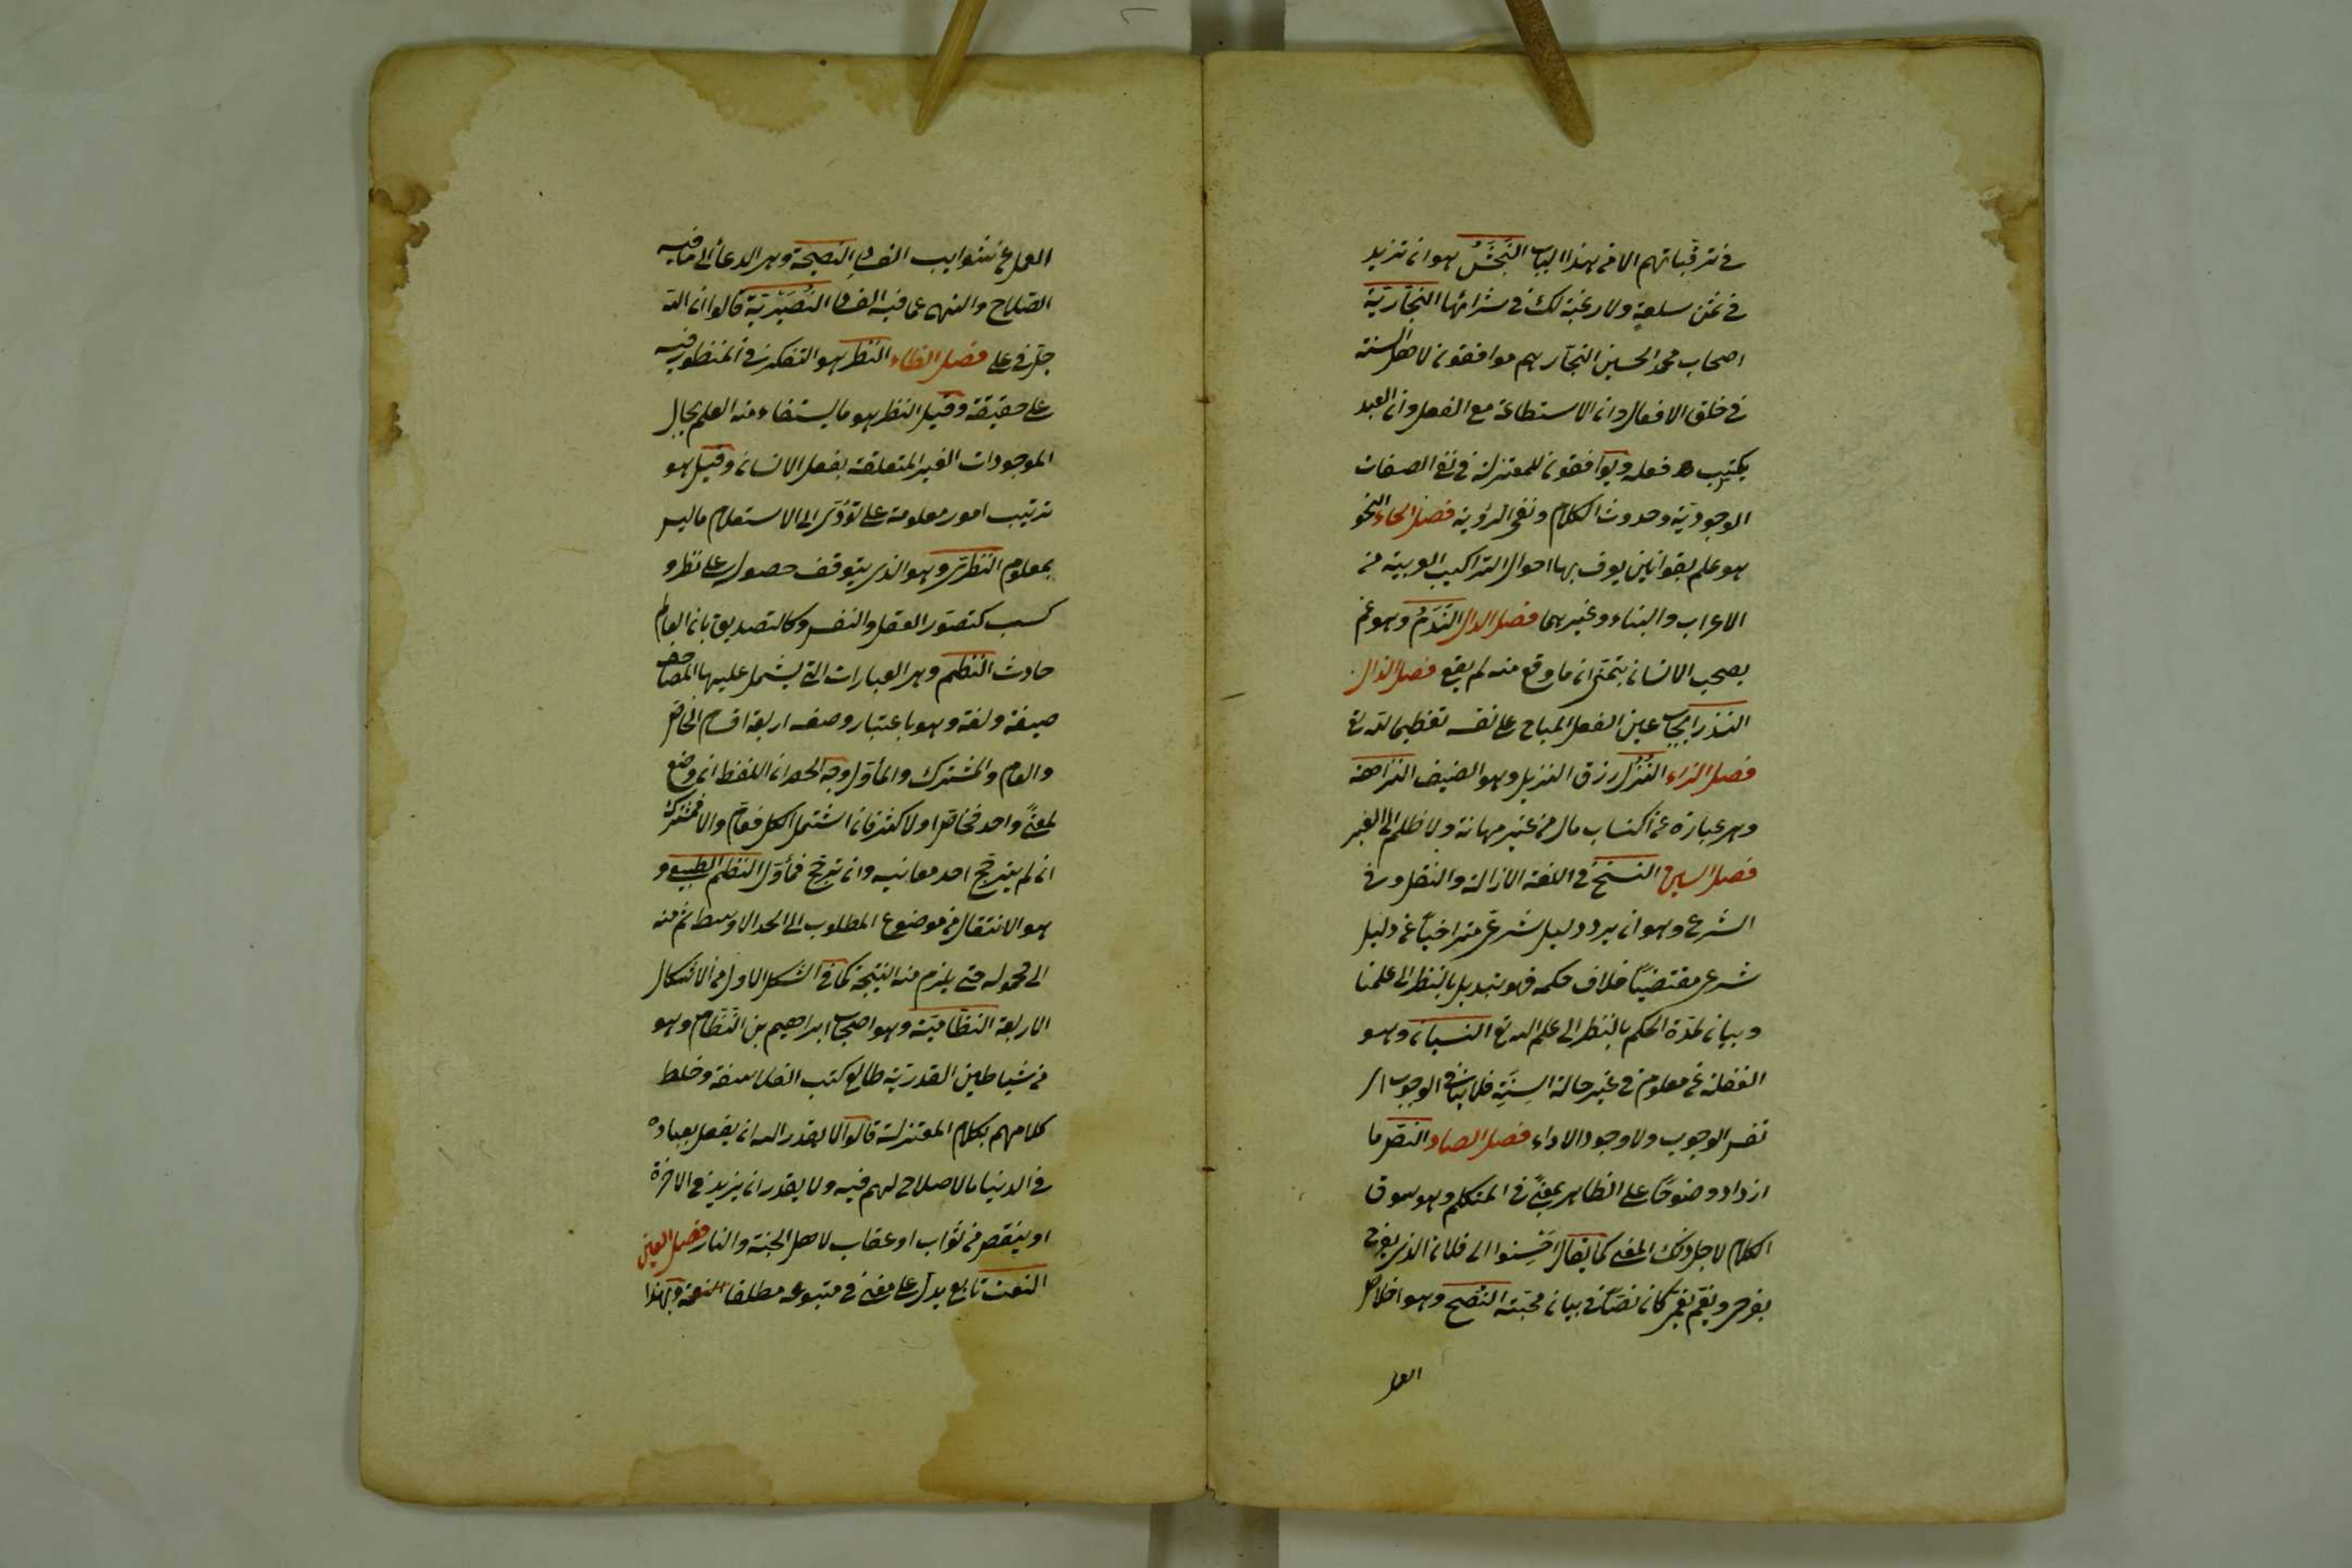 في ترقياتهم الا من هذا الباب النَّجَشُ هو ان تزيد
في ثمن سلعة ولا رغبة لك في شرائها النجّاريّة
اصحاب محمد الحسين النجّار هم موافقون لاهل السنة
في خلق الافعال وان الاستطاعة مع الفعل وان العبد
يكتسب فعله ويوافقون للمعتزلة في نفي الصفات
الوجوديّة وحدوث الكلام ونفي الرؤية فصل الحاء النحو
هو علم بقوانين يعرف بها احوال التراكيب العربية من
الاعراب والبناء وغيرهما فصل الدال النَّدَمُ وهو غم
يصحب الانسان يتمنى ان ما وقع منه لم يقع فصل الذال
النذر ايجاب عين الفعل المباح على نفسه تعظيما لله تع
فصل الزاء النُّزُل رزق النزيل وهو الضيف النزاهة
وهي عبارة عن اكتساب مال من غير مهانة ولا ظلم الى الغير
فصل السين النسخ في اللغة الازالة والنقل وفي
الشرع وهو ان يرد دليل شرعي متراخياً عن دليل
شرعي مقتضياً خلاف حكمه فهو تبديل بالنظر الى علمنا
وبيان لمدّة الحكم بالنظر الى علم الله تع النسيان وهو
الغفلة عن معلوم في غير حالة السِنَةِ فلا ينافي الوجوب اي
نفس الوجوب ولا وجود الاداء فصل الصاد النصّ ما
ازداد وضوحًا على الظاهر بمعنًى في المتكلم وهو سوق
الكلام لاجل ذلك المعنى كما يقال اَحْسِنوا الى فلان الذي يفرح
بفرحي ويغتم بغمي كان نصّاً في بيان محبّته النُّصح وهو اخلاص
العمل
العمل عن شوايب الفساد النصيحة وهي الدعاء الى ما فيه
الصّلاح والنهي عما فيه الفساد النُّصَيْريّة قالوا ان الله
حلّ في علي فصل الظاء النظر هو التفكر في المنظور فيه
على حقيقة وقيل النظر هو ما يستفاد منه العلم بحال
الموجودات الغير المتعلقة بفعل الانسان وقيل هو
ترتيب امور معلومة على تؤدّى الى الاستعلام ما ليس
بمعلوم النظريّ وهو الذي يتوقف حصوله على نظر و
كسب كتصوّر العقل والنفس وكالتصديق بان العالم
حادث النظم وهي العبارات التي يشمل عليها المصاحف
صيغة ولغة وهو باعتبار وصفه اربعة اقسام الخاصّ
والعام والمشترك والمأوّل وجه الحصر ان اللفظ ان وضع
لمعنًى واحد فخاصّ او لاكثر فان اشتمل الكل فعامّ والا فمشترك
ان لم يترجّح احد معانيه وان ترجّح فمأوّل النظم الطبيعي و
هو الانتقال من موضوع المطلوب الى الحد الاوسط ثم منه
الى محموله حتى يلزم منه النتيجة كما في الشكل الاول من الاشكال
الاربعة النظّاميّة وهو اصحاب ابراهيم بن النّظّام وهو
من شياطين القدريّة طالع كتب الفلاسفة وخلط
كلامهم بكلام المعتزلة قالوا لا يقدر الله ان يفعل بعباده
في الدنيا ما لا صلاح لهم فيه ولا يقدر ان يزيد في الاخرة
او ينقص من ثواب او عقاب لاهل الجنة والنار فصل العين
النعت تابع يدل على معنى في متبوعه مطلقا النعمة وبهذا